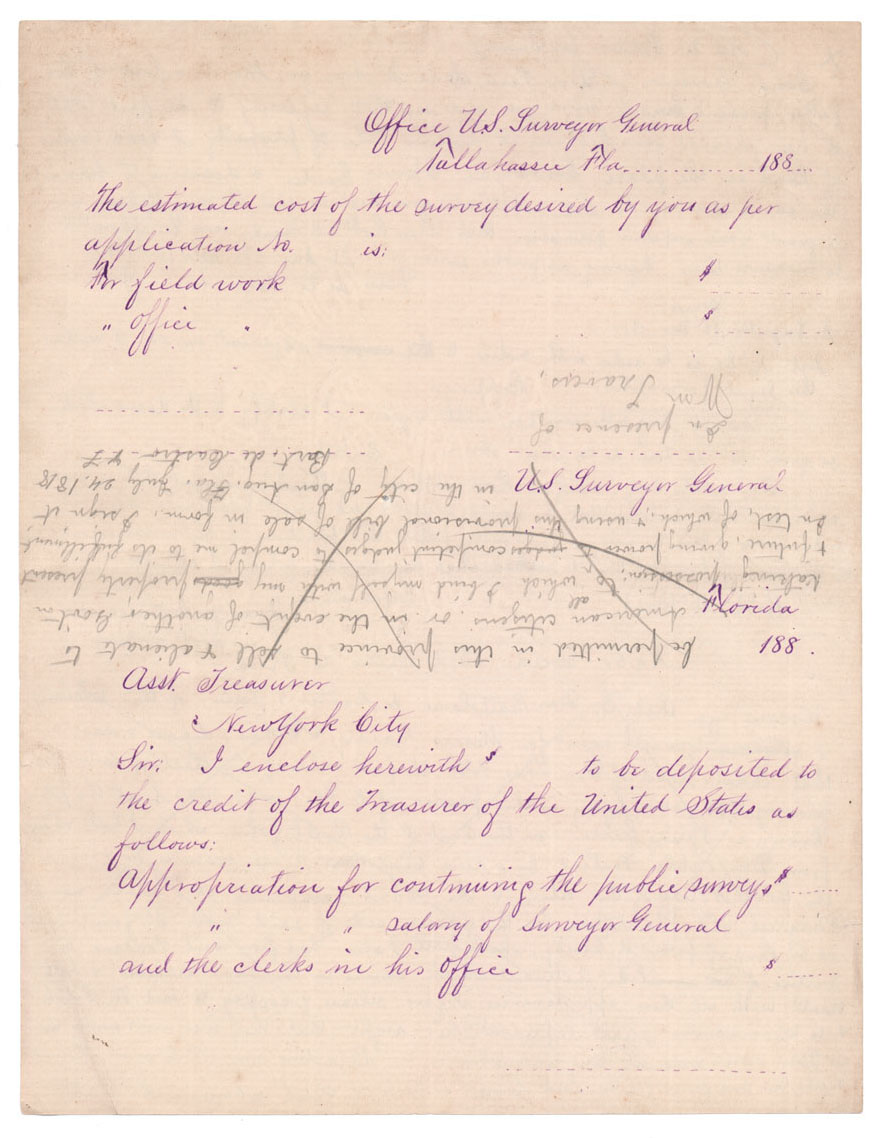 Office U.S. Surveyor General
Tallahassee Fla. 188
The estimated cost of the survey desired by you as per
application No. is:
For field work $
" office " $
U.S. Surveyor General
Florida
188 .
Asst. Treasurer
New York City
Sir: I enclose herewith $ to be deposited to
the credit of the Treasurer of the United States as
follows:
Appropriation for continuing the public surveys $
" " salary of Surveyor General
and the clerks in his office $
be permitted in this province to sell & alienate to
American citizens or in the event of another
taking possession; to all which I bind myself with my property present
& future, giving power to judges competent to compel me to its fulfilment
In test. of which, & using this provisional bill of sale in form, I sign it
in the city of San Aug. Fla. July 24 1818
Bart. de Castro y F
In presence of
Wm Travers,